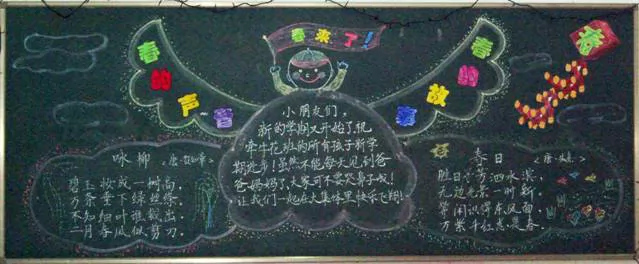 春来了!
春的声音
春的故事
春
小朋友们,
新的学期又开始了,祝
牵牛花班的所有孩子新学
期进步!虽然不能每天见到爸
爸妈妈了,大家可不要哭鼻子哦!
让我们一起在大集体里快乐飞翔!
咏柳 <唐·贺知章>
碧玉妆成一树高,
万条垂下绿丝绦。
不知细叶谁裁出,
二月春风似剪刀。
春日
胜日寻芳泗水滨,
无边光景一时新。
等闲识得东风面,
万紫千红总是春。